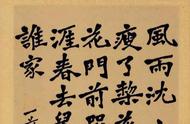 風雨沈
瘦了棃花
花門前
涯春去
誰家